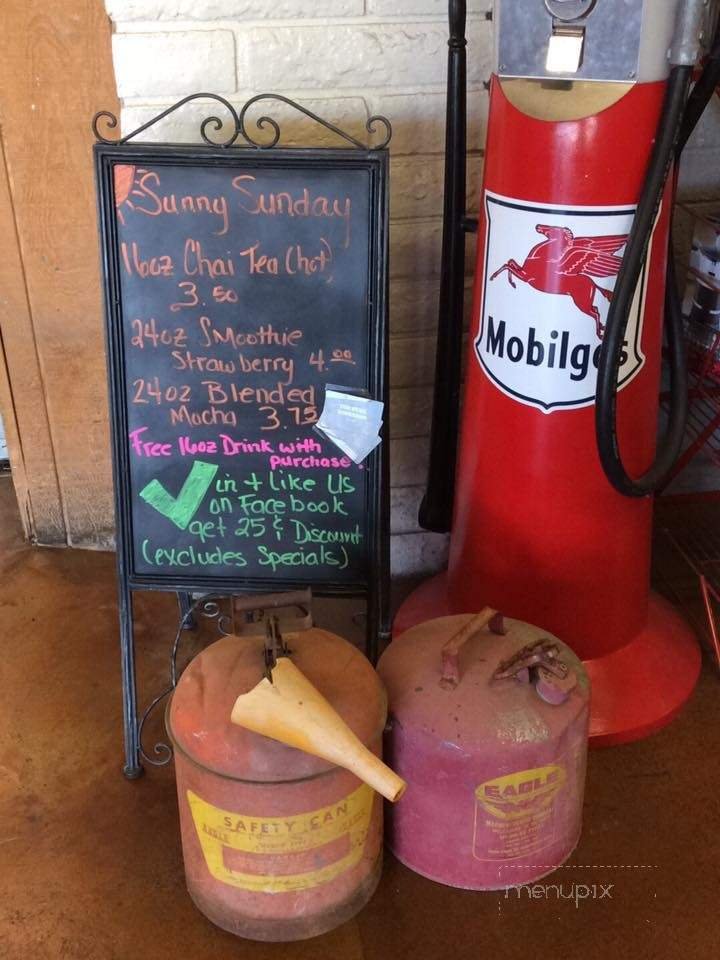 Sunny Sunday
16oz Chai Tea (hot)
3.50
24oz Smoothie
Strawberry 4.00
24oz Blended
Mocha 3.75
Free 16oz Drink with
purchase!
✓ in + Like Us
on Facebook
get 25¢ Discount
(excludes Specials)
Mobilgas
SAFETY CAN
EAGLE
EAGLE
menupix